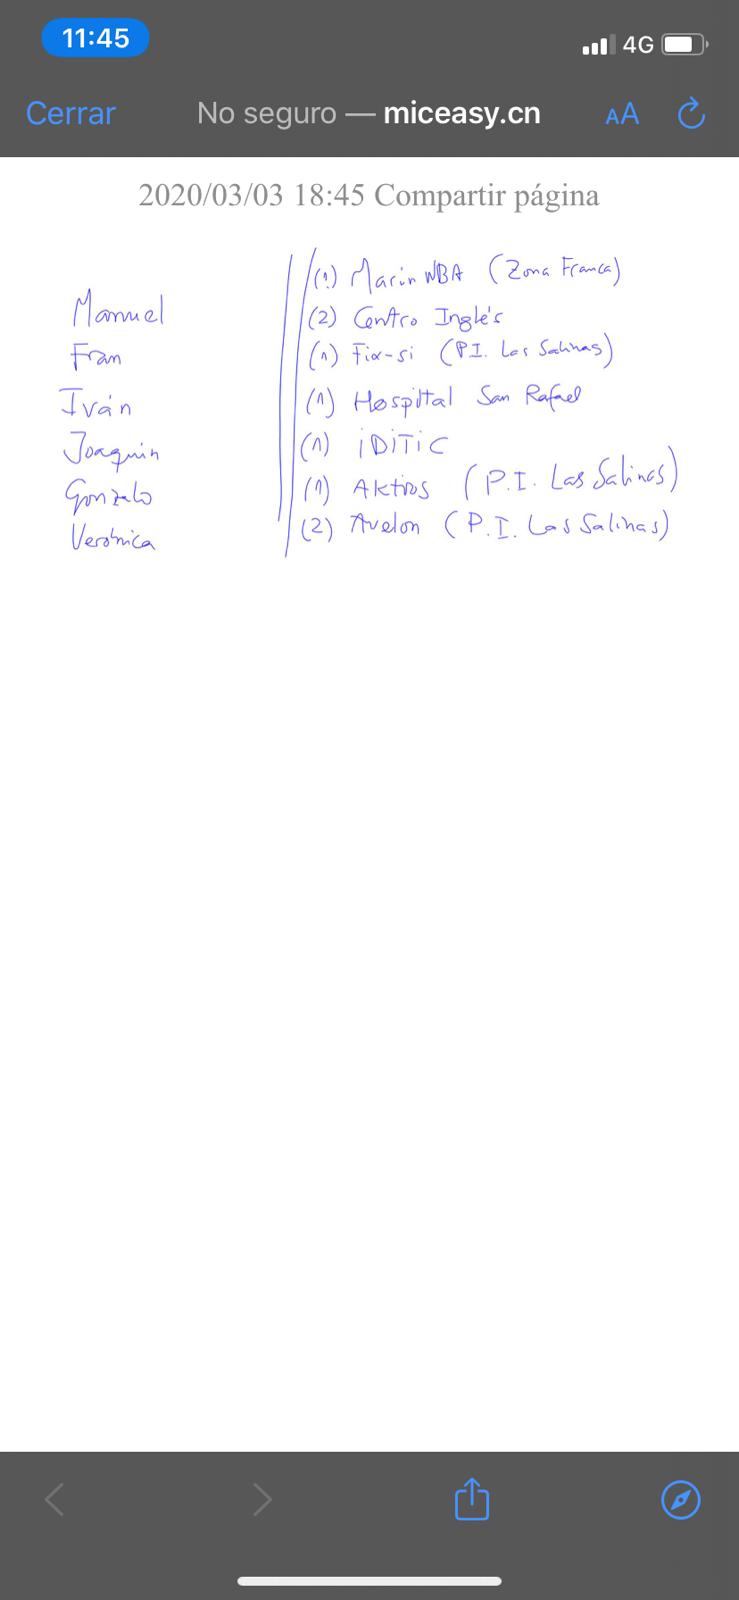 11:45
4G
Cerrar
No seguro — miceasy.cn
AA
2020/03/03 18:45 Compartir página
Manuel
Fran
Iván
Joaquin
Gonzalo
Verónica
(1) Marin WBA (Zona Franca)
(2) Centro Inglés
(1) Fix-si (P.I. Las Salinas)
(1) Hospital San Rafael
(1) iDiTiC
(1) Aktios (P.I. Las Salinas)
(2) Avelon (P.I. Las Salinas)